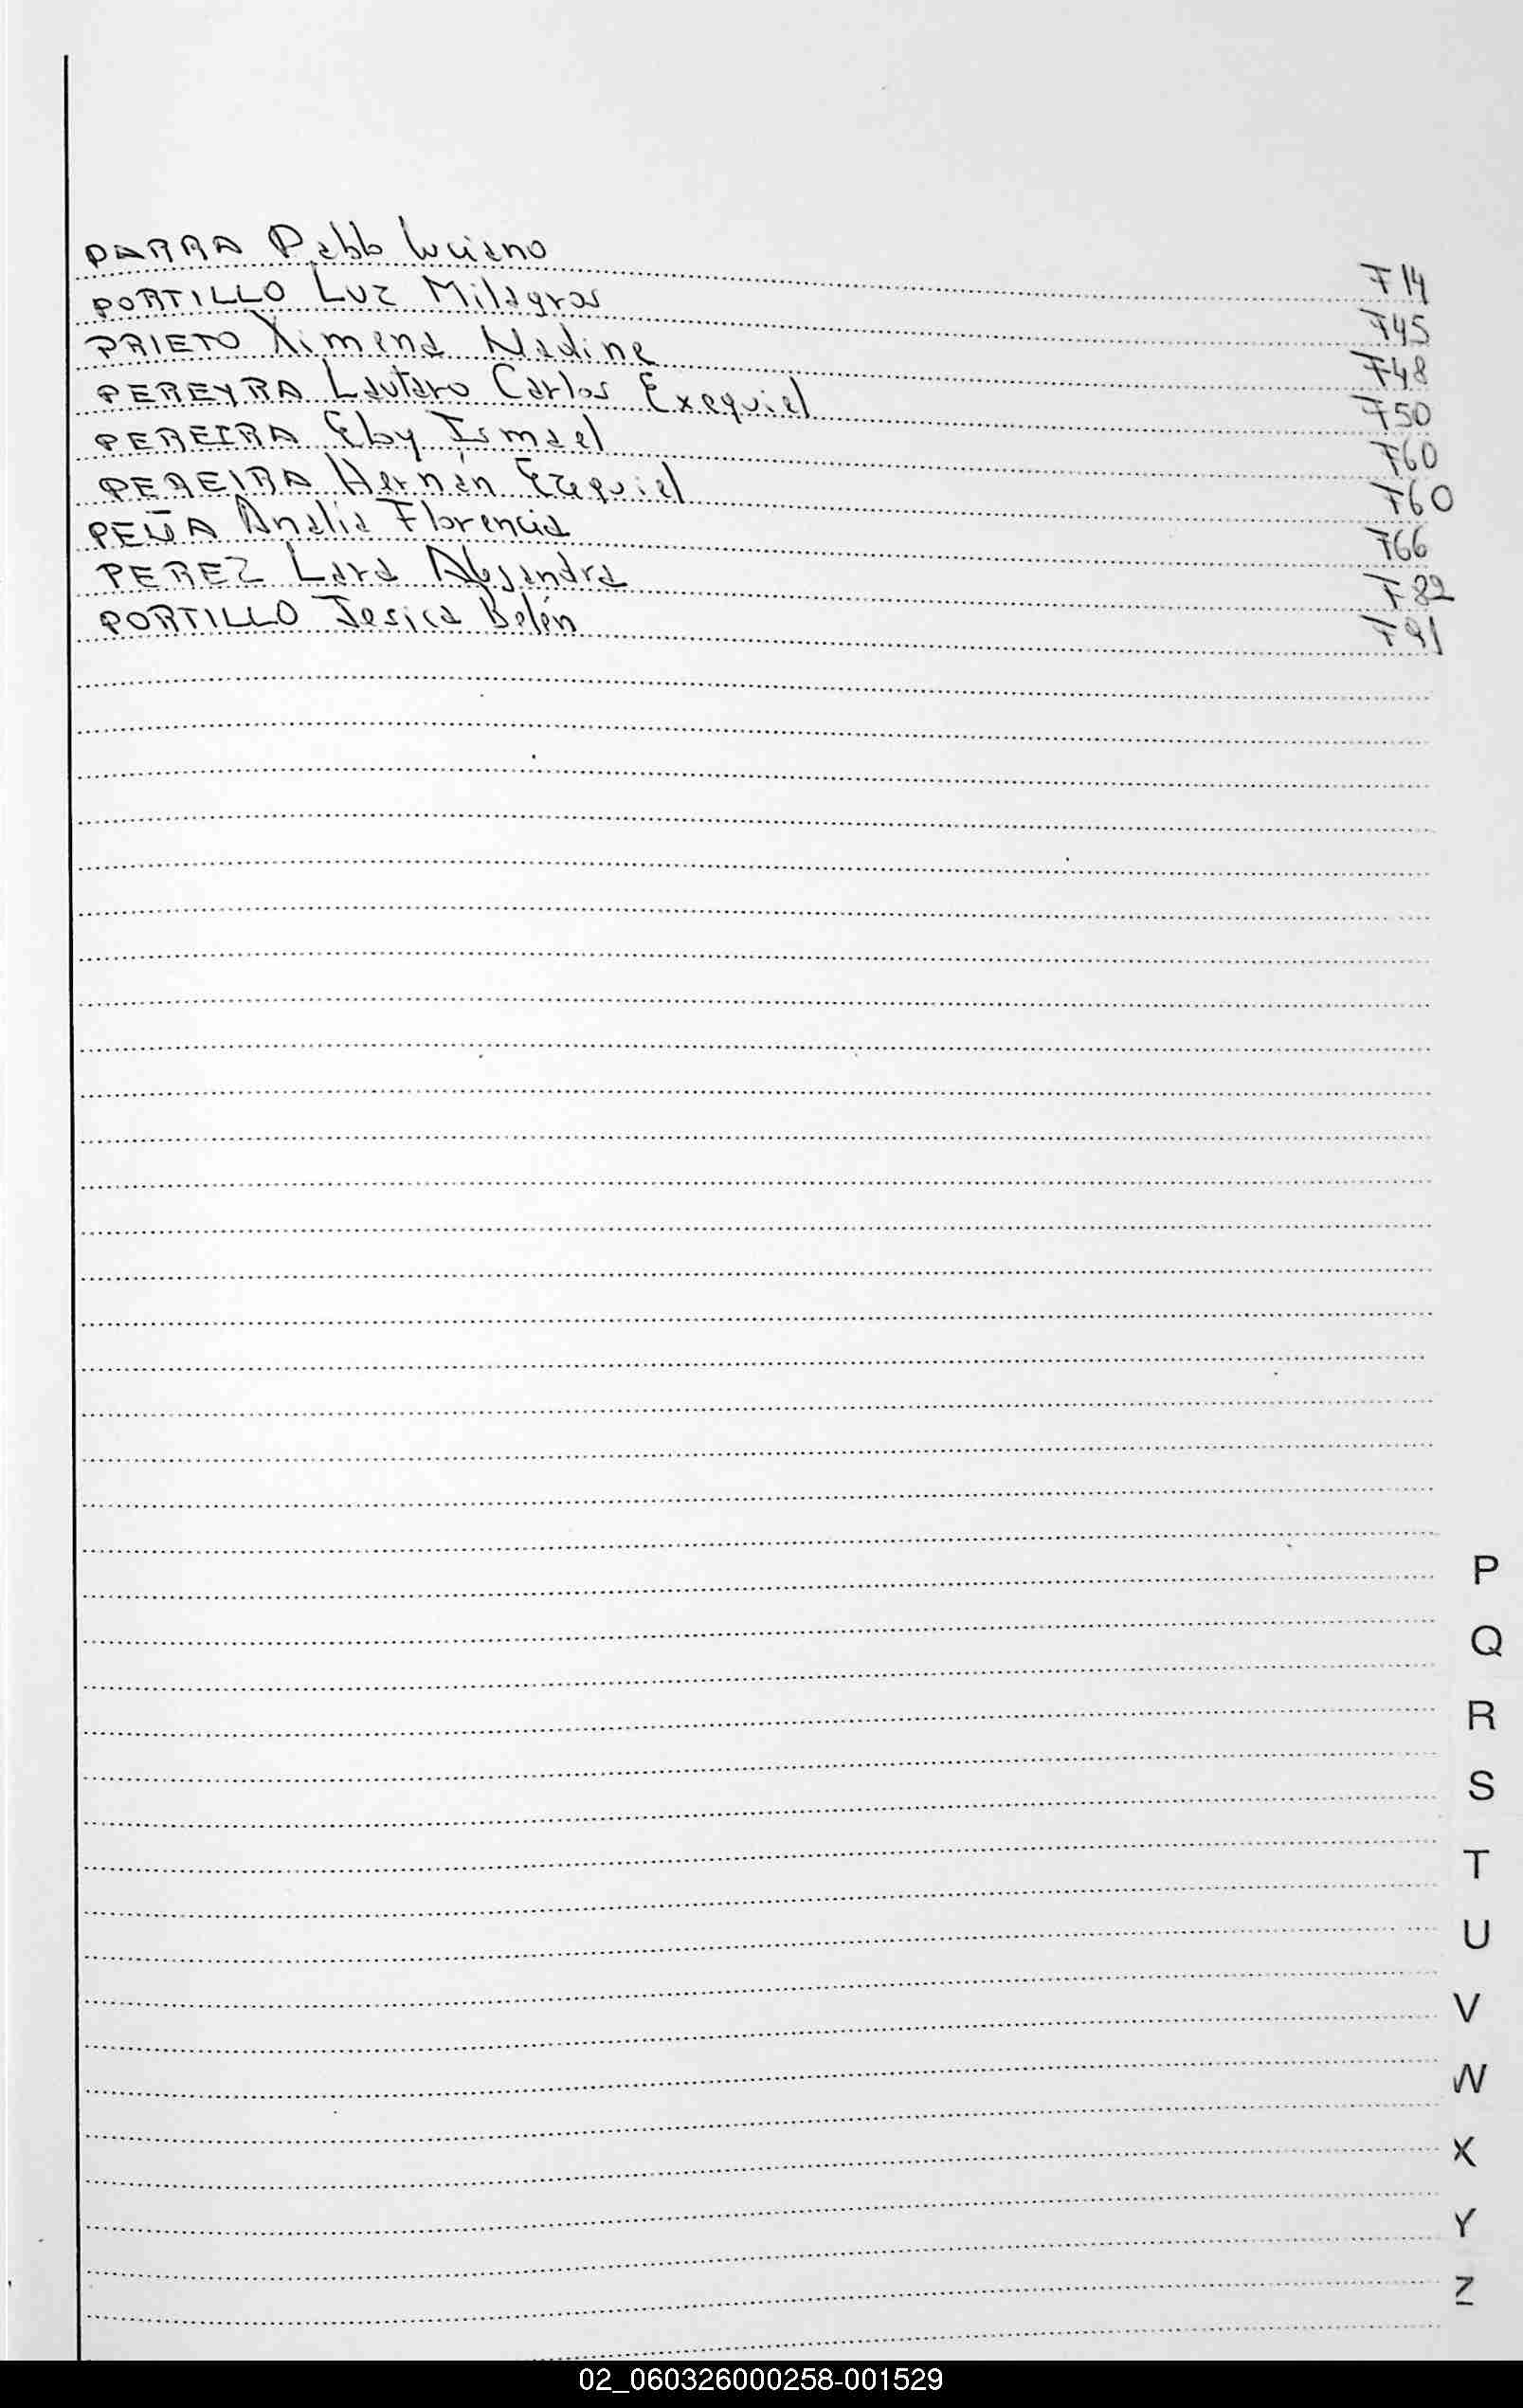 PARRA Pablo Luciano F14
PORTILLO Luz Milagros F45
PRIETO Ximena Nadine F48
PEREYRA Lautaro Carlos Exequiel F50
PEREIRA Eloy Ismael F60
PEREIRA Hernán Ezequiel F60
PEÑA Analia Florencia F66
PEREZ Lara Alejandra F82
PORTILLO Jesica Belén F91
P
Q
R
S
T
U
V
W
X
Y
Z
02_060326000258-001529